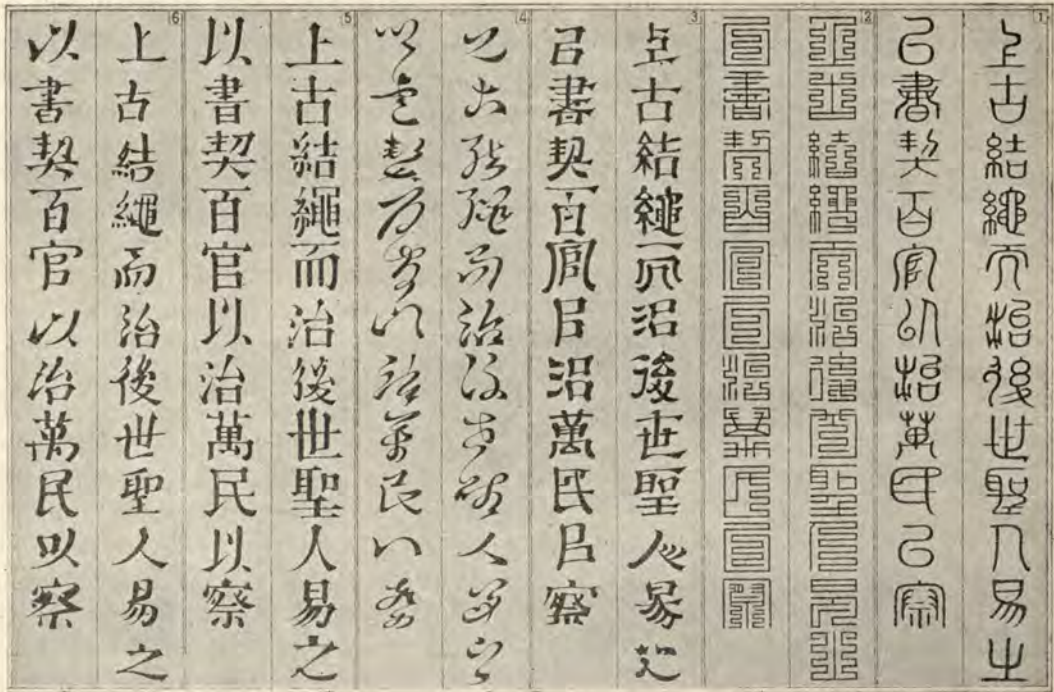 1
上古結繩而治後世聖人易之
以書契百官以治萬民以察
2
上古結繩而治後世聖人易之
以書契百官以治萬民以察
3
上古結繩而治後世聖人易之
以書契百官以治萬民以察
4
上古結繩而治後世聖人易之
以書契百官以治萬民以察
5
上古結繩而治後世聖人易之
以書契百官以治萬民以察
6
上古結繩而治後世聖人易之
以書契百官以治萬民以察